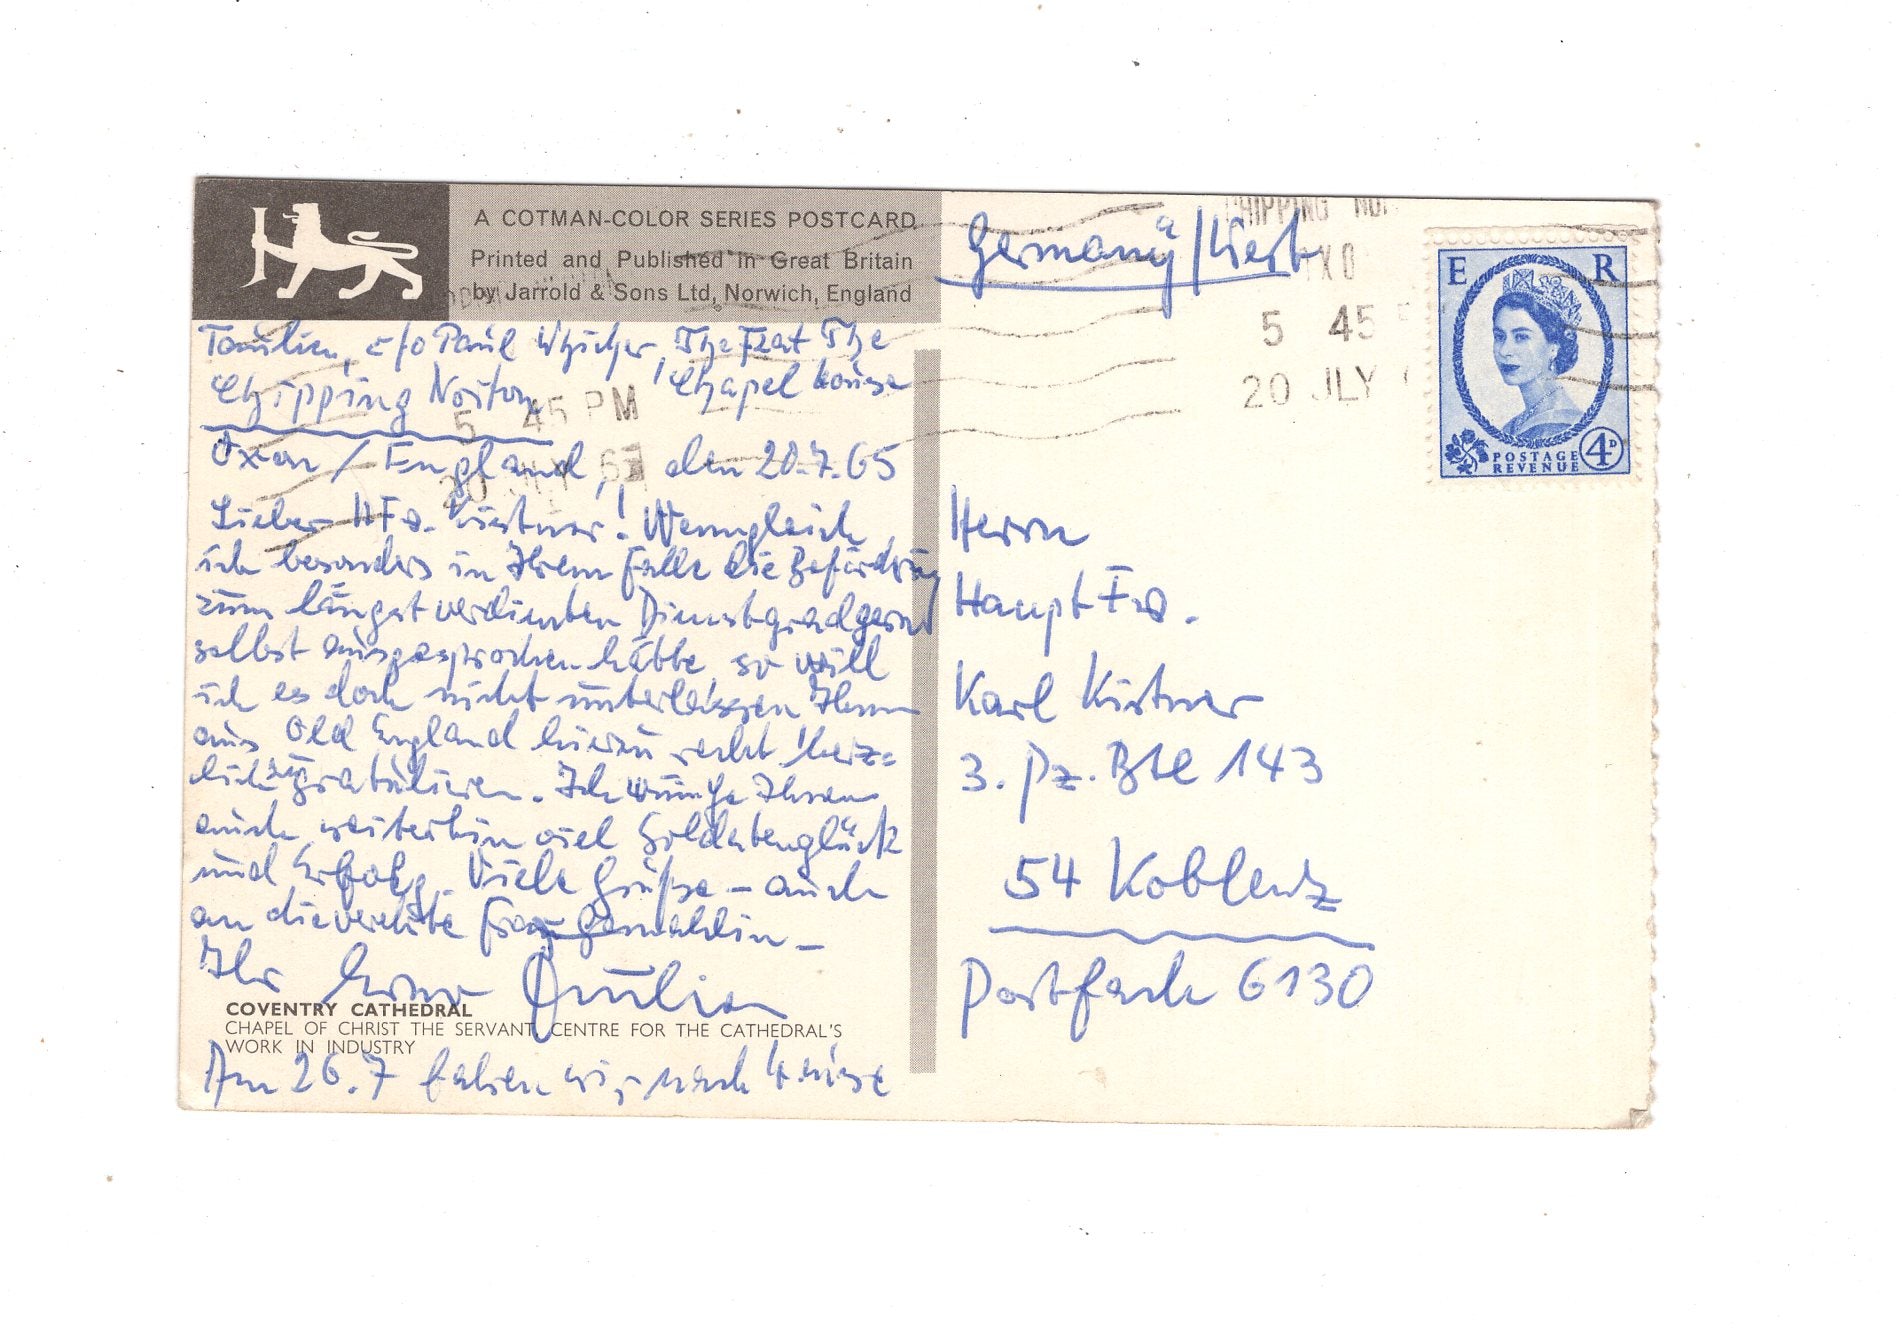 A COTMAN-COLOR SERIES POSTCARD
Printed and Published in Great Britain
by Jarrold & Sons Ltd, Norwich, England
c/o Paul Whicher, The Flat The
Chipping Norton, Chapel house
Oxon / England, den 20.7.65
Lieber HFw. Kirstner! Wenngleich
ich besonders in Ihrem Falle die Beförderung
zum längst verdienten Dienstgrad gern
selbst ausgesprochen hätte, so will
ich es doch nicht unterlassen Ihnen
aus Old England hierzu recht herz=
lich zu gratulieren. Ich wünsche Ihnen
auch weiterhin viel Soldatenglück
und Erfolg. Viele Grüße – auch
an die verehrte Frau Gemahlin –
Ihr
COVENTRY CATHEDRAL
CHAPEL OF CHRIST THE SERVANT, CENTRE FOR THE CATHEDRAL'S
WORK IN INDUSTRY
Am 26.7 fahren wir nach Hause
5 45 PM
20 JLY
Germany/West
CHIPPING NOR
OXO
5 45 P
20 JLY
E R
POSTAGE
REVENUE
4D
Herrn
Haupt Fw.
Karl Kirstner
3. Pz. Btl 143
54 Koblenz
Postfach 6130